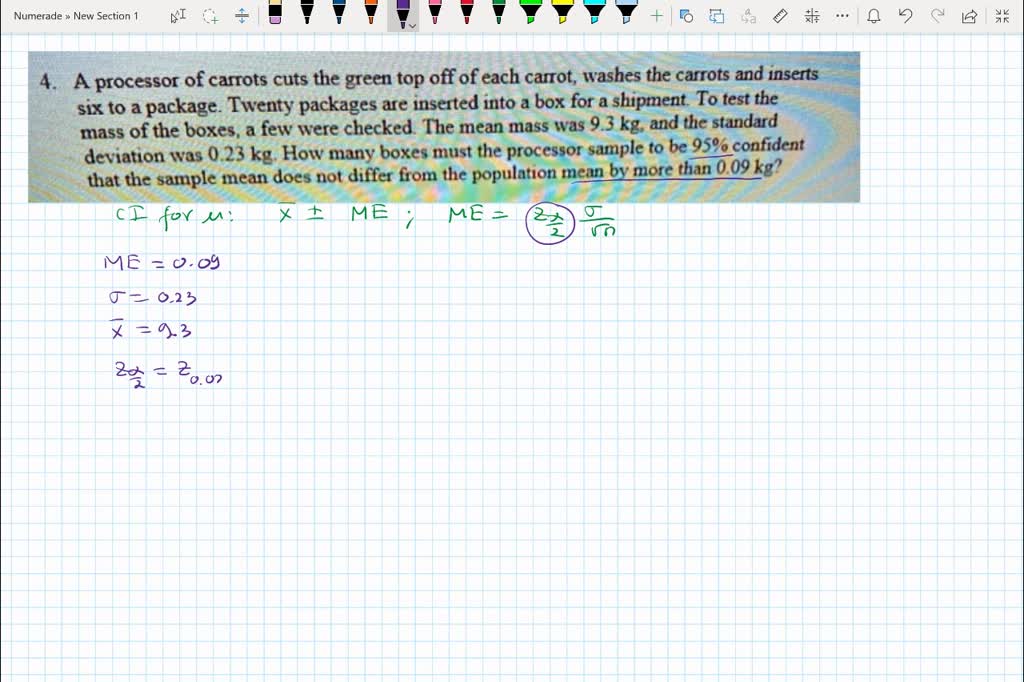 Numerade » New Section 1
4. A processor of carrots cuts the green top off of each carrot, washes the carrots and inserts
six to a package. Twenty packages are inserted into a box for a shipment. To test the
mass of the boxes, a few were checked. The mean mass was 9.3 kg, and the standard
deviation was 0.23 kg. How many boxes must the processor sample to be 95% confident
that the sample mean does not differ from the population mean by more than 0.09 kg?
CI for μ: x̄ ± ME ; ME = z α/2 σ/√n
ME = 0.09
σ = 0.23
x̄ = 9.3
z α/2 = z 0.02